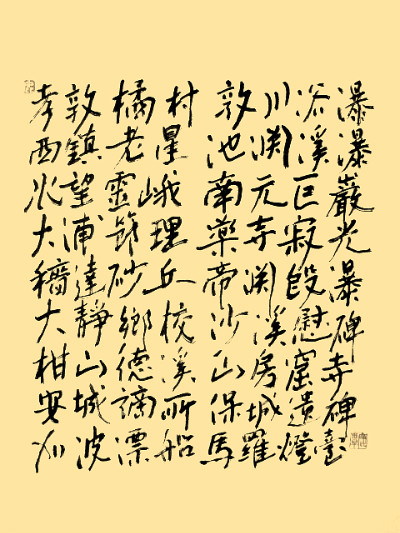 瀑瀑巖光瀑碑寺碑
谷溪巨寂段慰窟遺燈
川渊元寺渊溪房城羅
敦池南藥帝沙山保馬
村星峨理丘校溪所船
橘老靈砂鄉德謫漂
敦鎮望浦達静山城波
孝西水大大柑安加